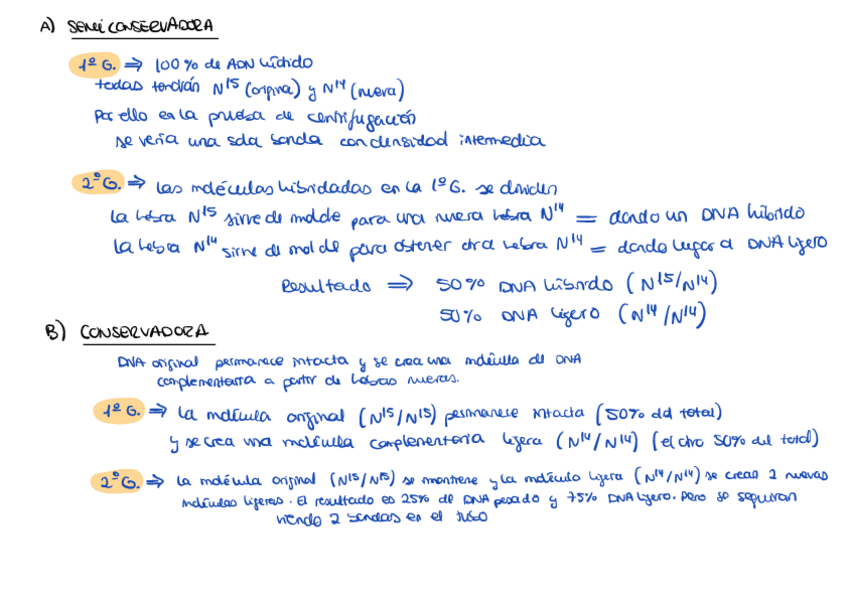 A) SEMICONSERVADORA
1º G. ⇒ 100% de ADN híbrido
todas tendrán N15 (original) y N14 (nueva)
Por ello en la prueba de centrifugación
se vería una sola banda con densidad intermedia
2º G. ⇒ Las moléculas hibridadas en la 1º G. se dividen
La hebra N15 sirve de molde para una nueva hebra N14 = dando un DNA híbrido
La hebra N14 sirve de molde para obtener otra hebra N14 = dando lugar a DNA ligero
Resultado ⇒ 50% DNA híbrido (N15/N14)
50% DNA ligero (N14/N14)
B) CONSERVADORA
DNA original permanece intacta y se crea una molécula de DNA
complementaria a partir de hebras nuevas.
1º G. ⇒ La molécula original (N15/N15) permanece intacta (50% del total)
y se crea una molécula complementaria ligera (N14/N14) (el otro 50% del total)
2º G. ⇒ La molécula original (N15/N15) se mantiene y la molécula ligera (N14/N14) se crean 2 nuevas
moléculas ligeras. El resultado es 25% de DNA pesado y 75% DNA ligero. Pero se seguirían
viendo 2 bandas en el tubo